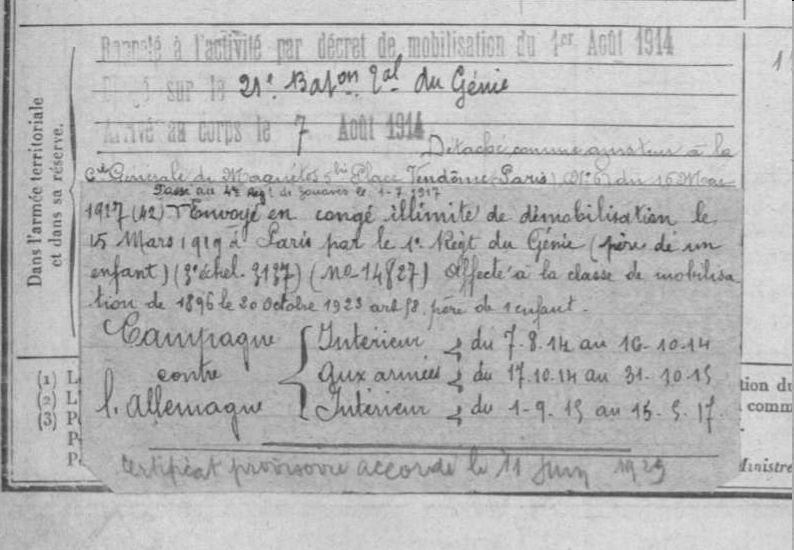 Rappelé à l'activité par décret de mobilisation du 1er Août 1914
sur le 21e Baton Tal du Génie
Arrivé au corps le 7 Août 1914 Détaché comme ajusteur à la
Cie Générale de Magnétos 5 bis Place Vendôme Paris (No 6) du 16 Mai
Passe au 4e Régt de zouaves le 1-7-1917
1917 (42) Envoyé en congé illimité de démobilisation le
15 Mars 1919 à Paris par le 1e Régt du Génie (père de un
enfant) (3e échel. 3137) (No 14827) Affecté à la classe de mobilisa
tion de 1896 le 20 Octobre 1923 art 58. père de 1 enfant.
Campagne contre l'Allemagne
Intérieur du 7-8-14 au 16-10-14
Aux armées du 17.10.14 au 31-10-15
Intérieur du 1-9-15 au 15-5-17.
Certificat provisoire accordé le 11 Juin 1929
Dans l'armée territoriale
et dans sa réserve.
(1) L
(2) L'
(3) P
P
P
tion du
comm
Ministre